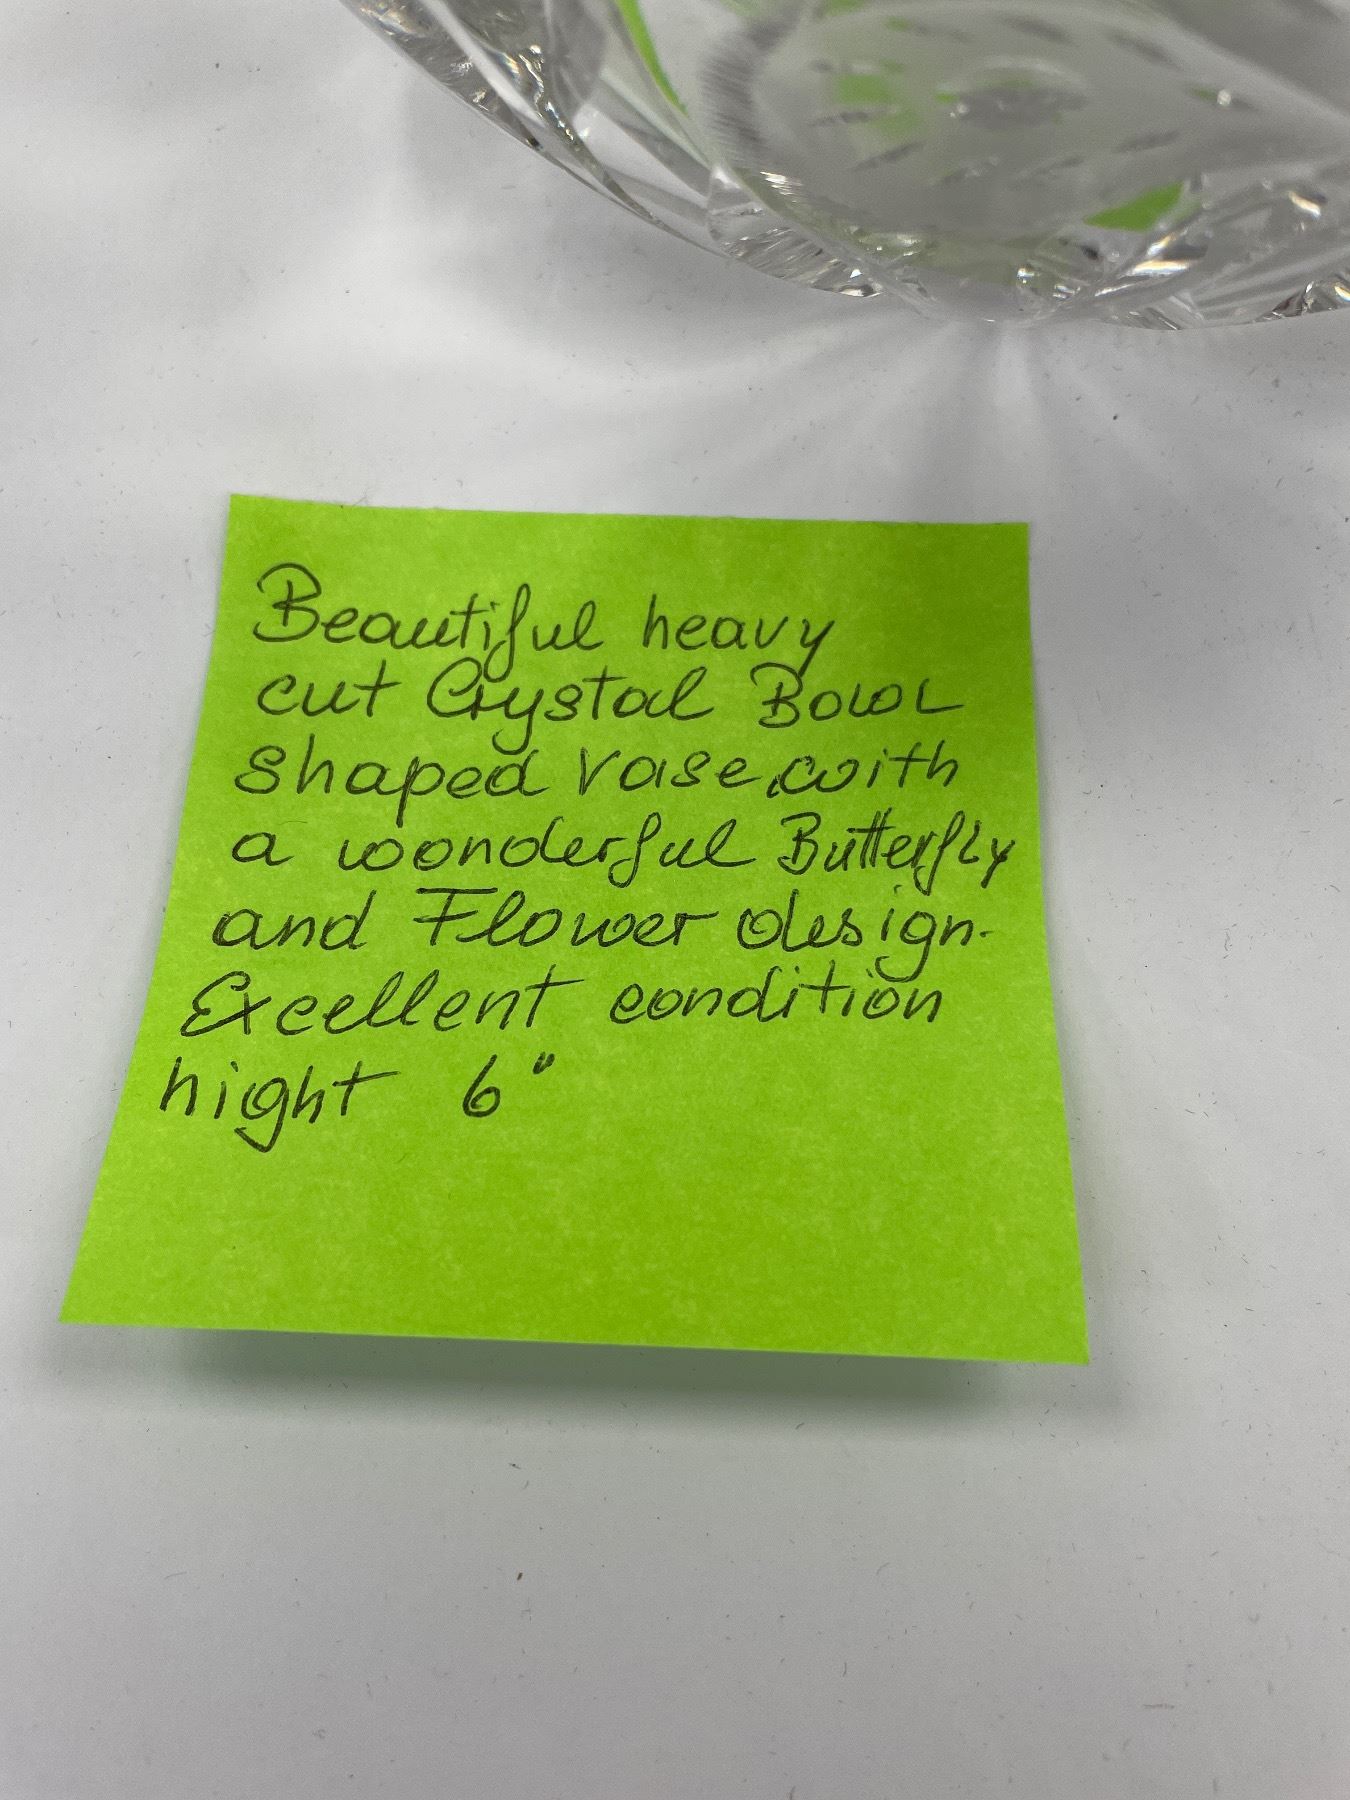 Beautiful heavy
cut Crystal Bowl
shaped vase, with
a wonderful Butterfly
and Flower design.
Excellent condition
hight 6"